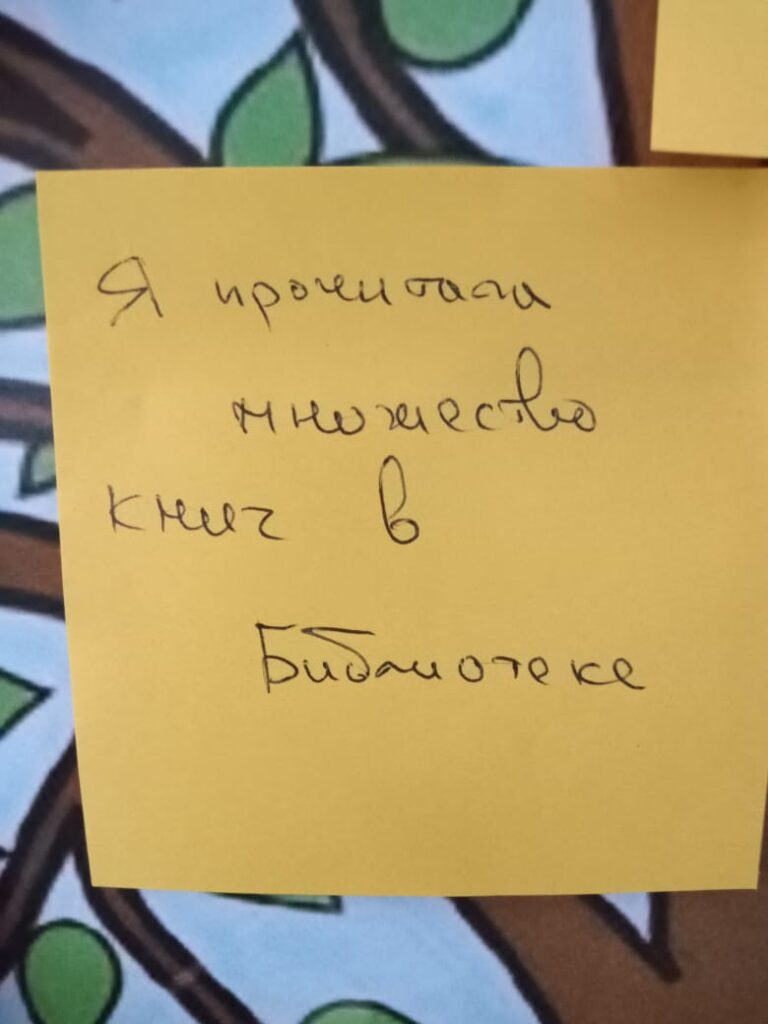 Я прочитала
множество
книг в
Библиотеке